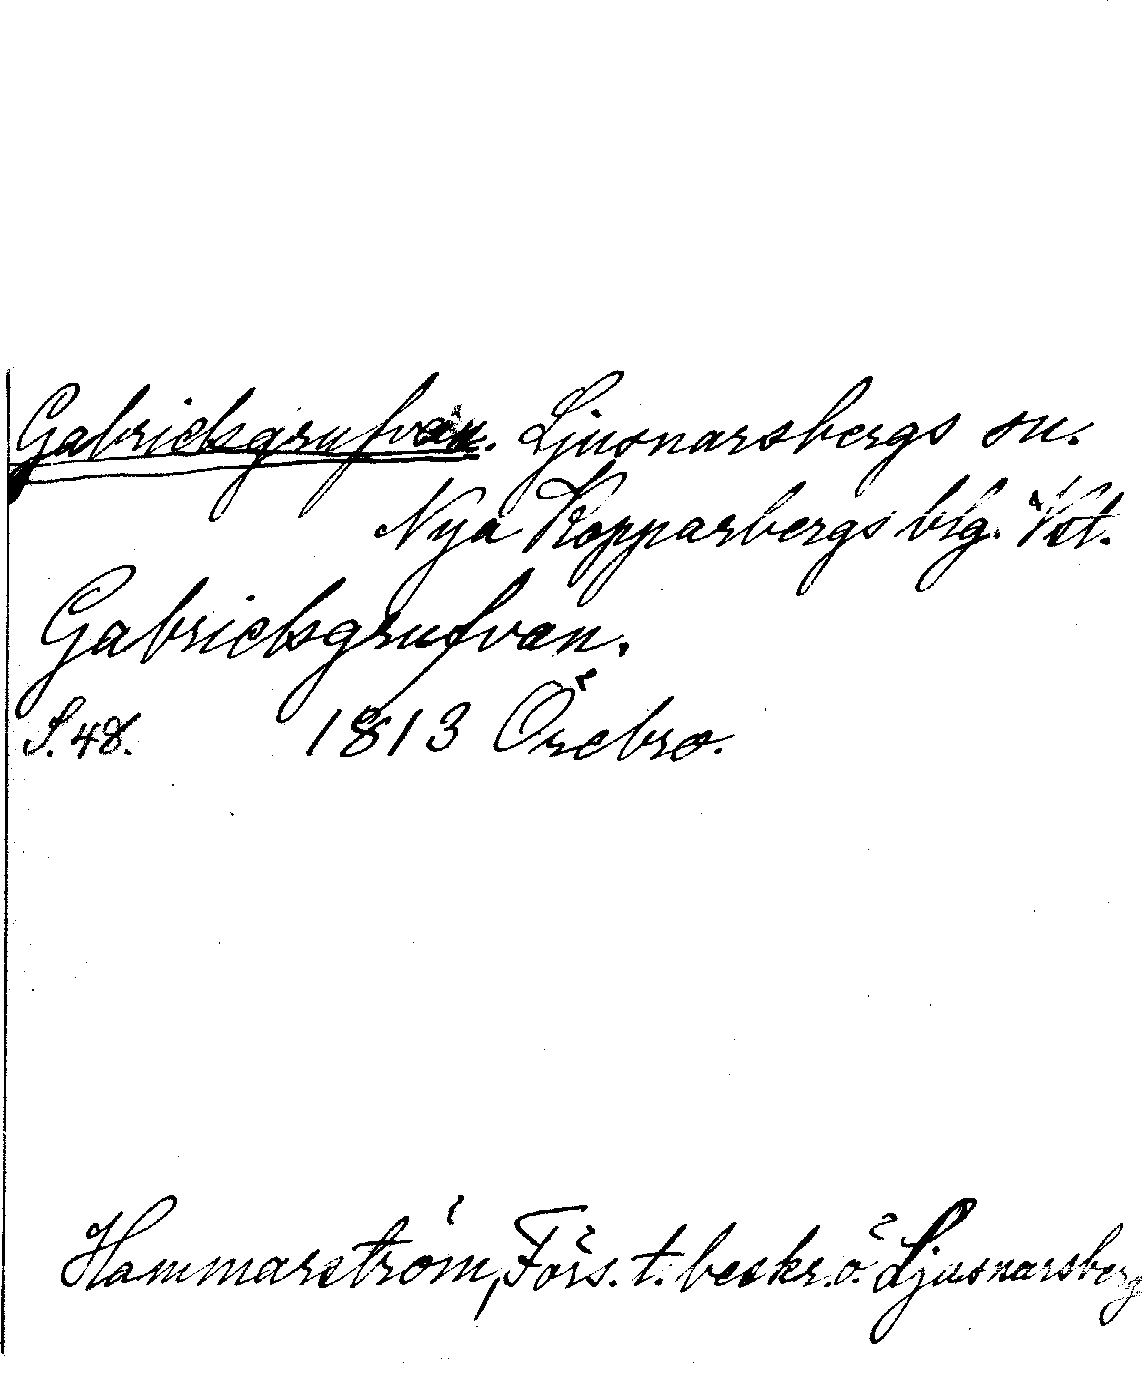 Gabrielsgrufvan. Ljusnarsbergs sn.
Nya Kopparbergs blg. Vst.
Gabrielsgrufvan.
S. 48. 1813 Örebro.
Hammarström, Förs. t. beskr. ö. Ljusnarsberg